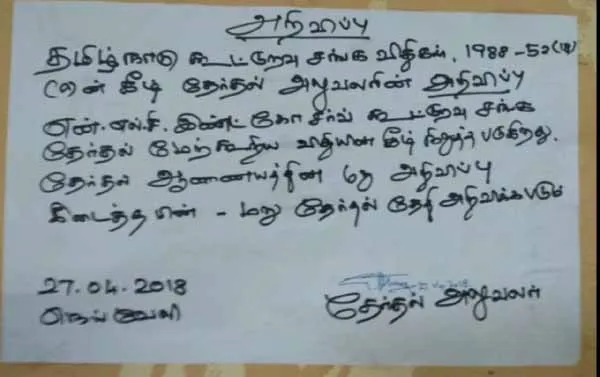 அறிவிப்பு
தமிழ்நாடு கூட்டுறவு சங்க விதிகள், 1988-52(18)
ன் கீழ் தேர்தல் அலுவலரின் அறிவிப்பு
என்.எல்.சி. இண்ட்கோ சர்வ் கூட்டுறவு சங்க
தேர்தல் மேற்கூறிய விதியின் கீழ் நிறுத்தப்படுகிறது.
தேர்தல் ஆணையத்தின் மறு அறிவிப்பு
கிடைத்தபின் - மறு தேர்தல் தேதி அறிவிக்கபடும்
27.04.2018
நெய்வேலி
தேர்தல் அலுவலர்